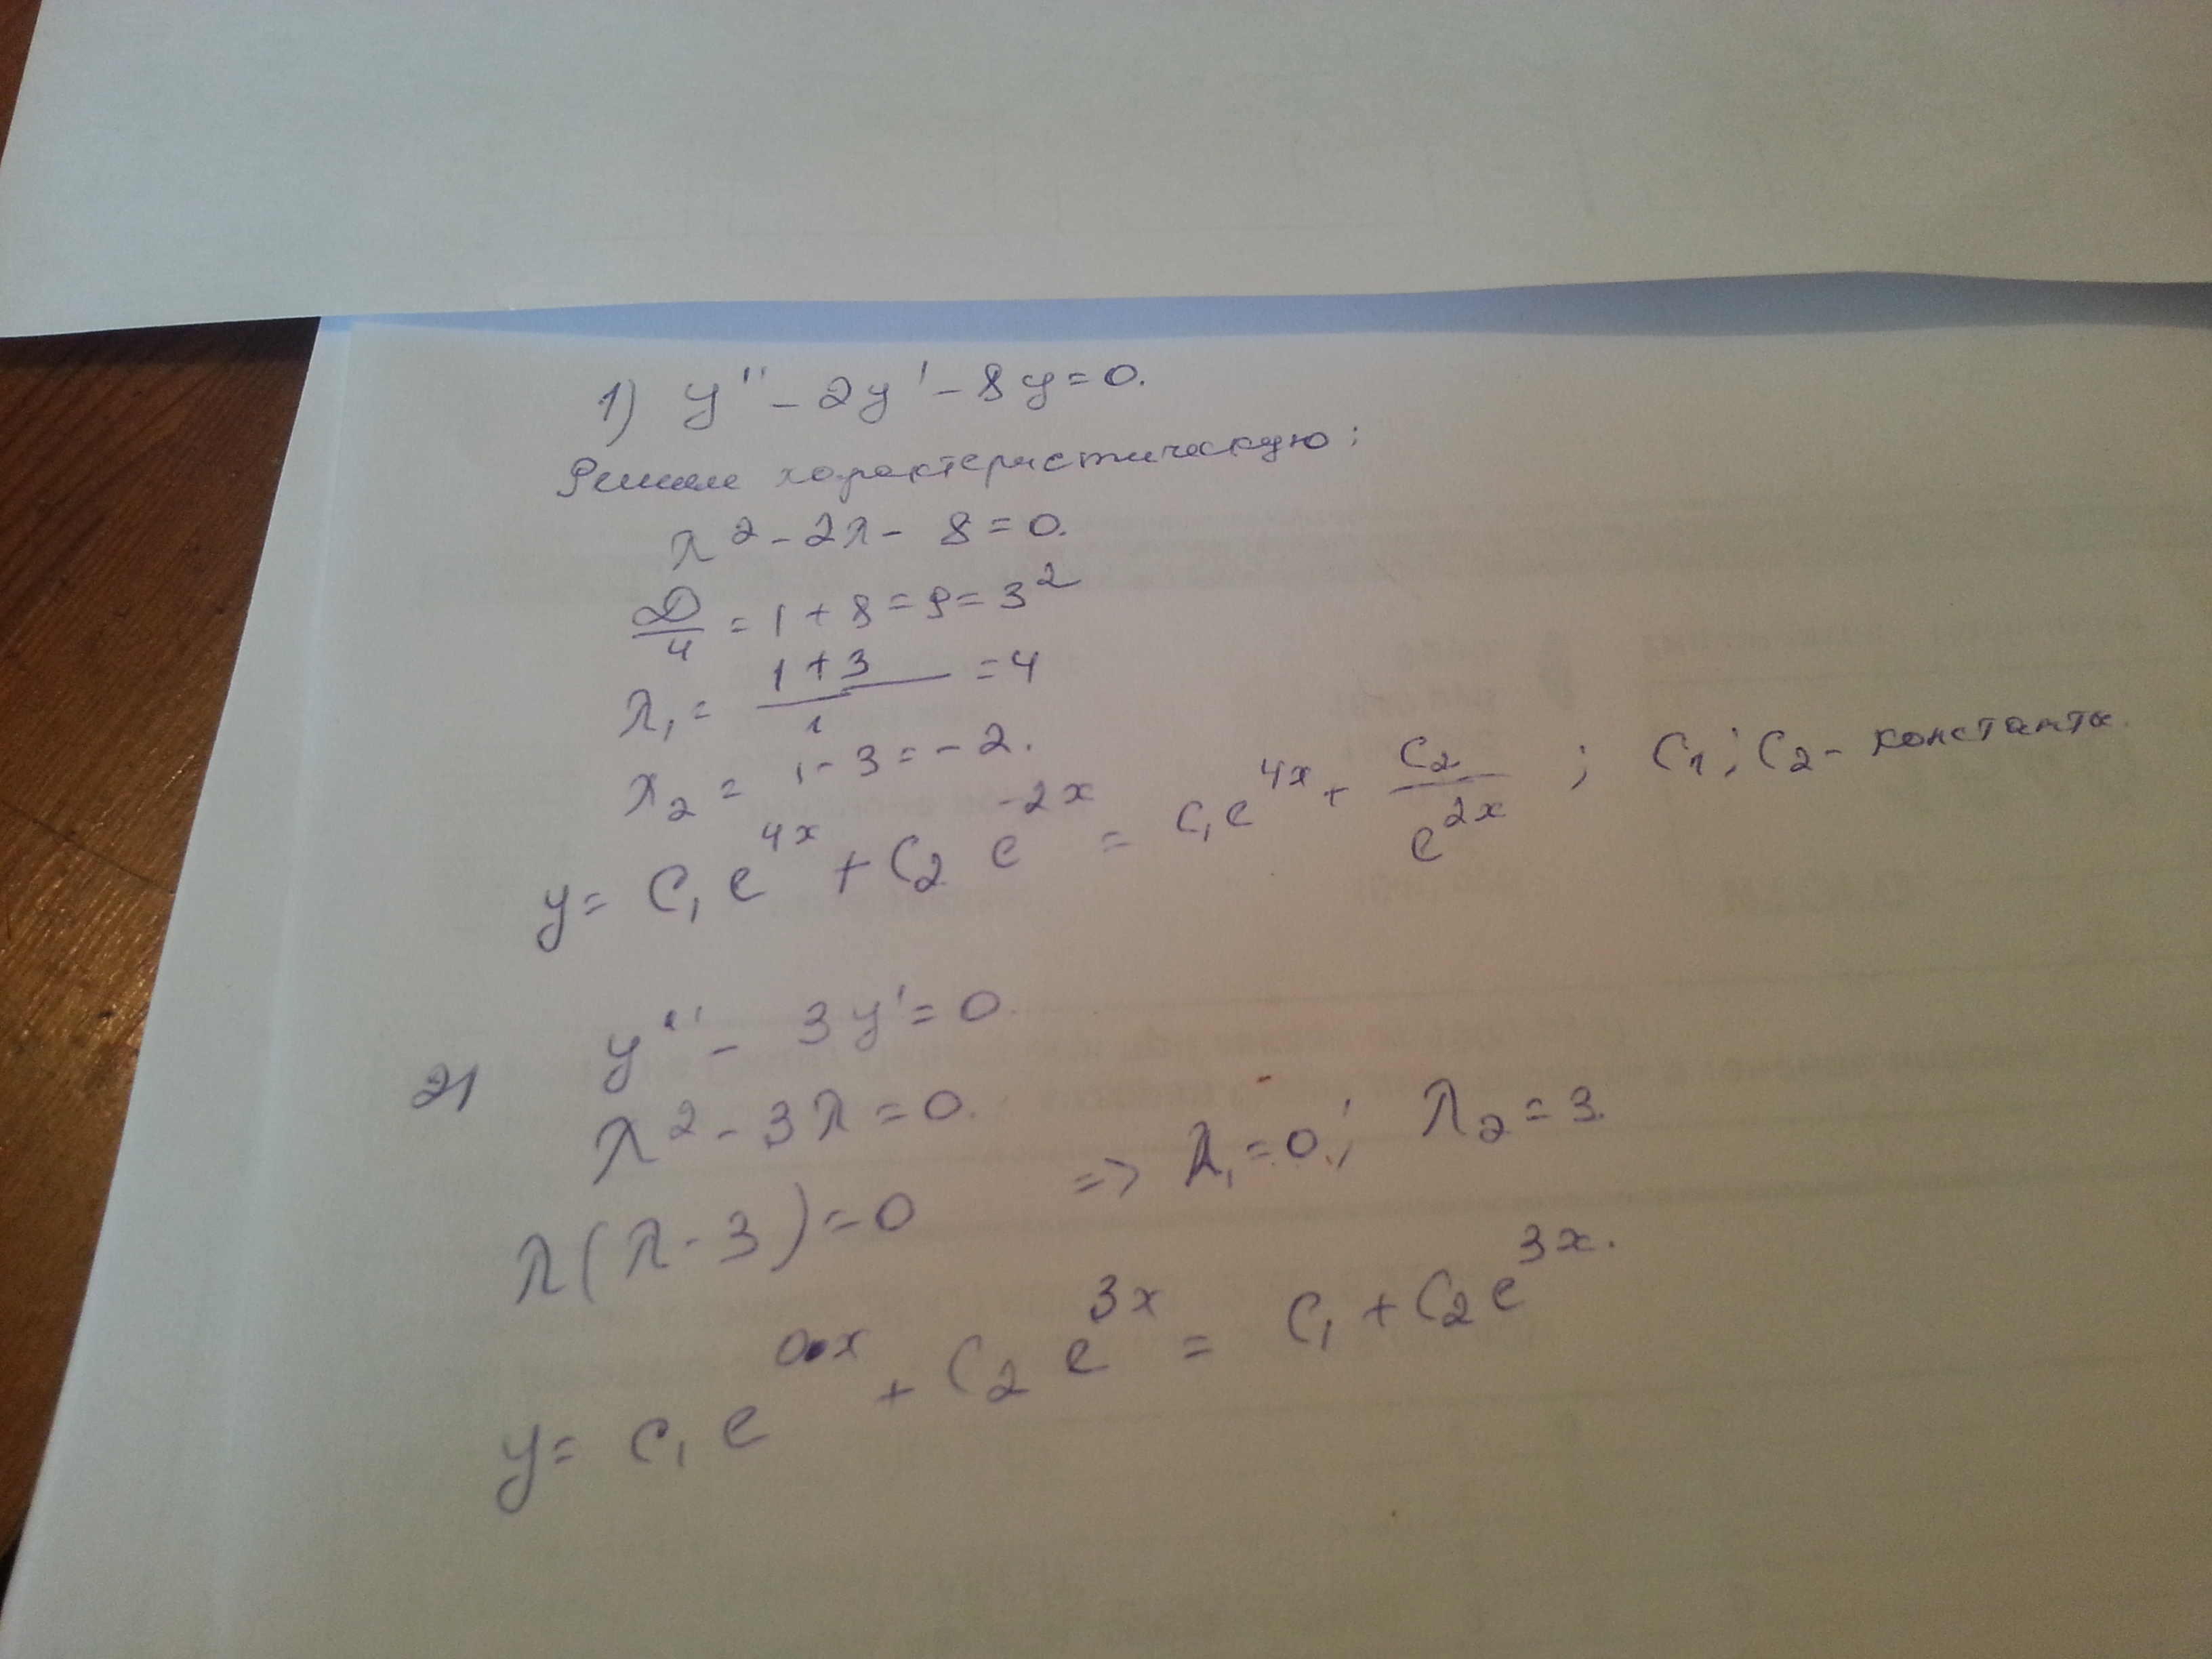 1) y'' - 2y' - 8y = 0.
Решаем характеристическую:
λ² - 2λ - 8 = 0.
D/4 = 1 + 8 = 9 = 3²
λ₁ = (1 + 3)/1 = 4
λ₂ = 1 - 3 = -2.
y = C₁e^(4x) + C₂e^(-2x) = C₁e^(4x) + C₂/e^(2x) ; C₁; C₂ - константы.
2) y'' - 3y' = 0.
λ² - 3λ = 0.
λ(λ - 3) = 0 => λ₁ = 0; λ₂ = 3.
y = C₁e^(0•x) + C₂e^(3x) = C₁ + C₂e^(3x).